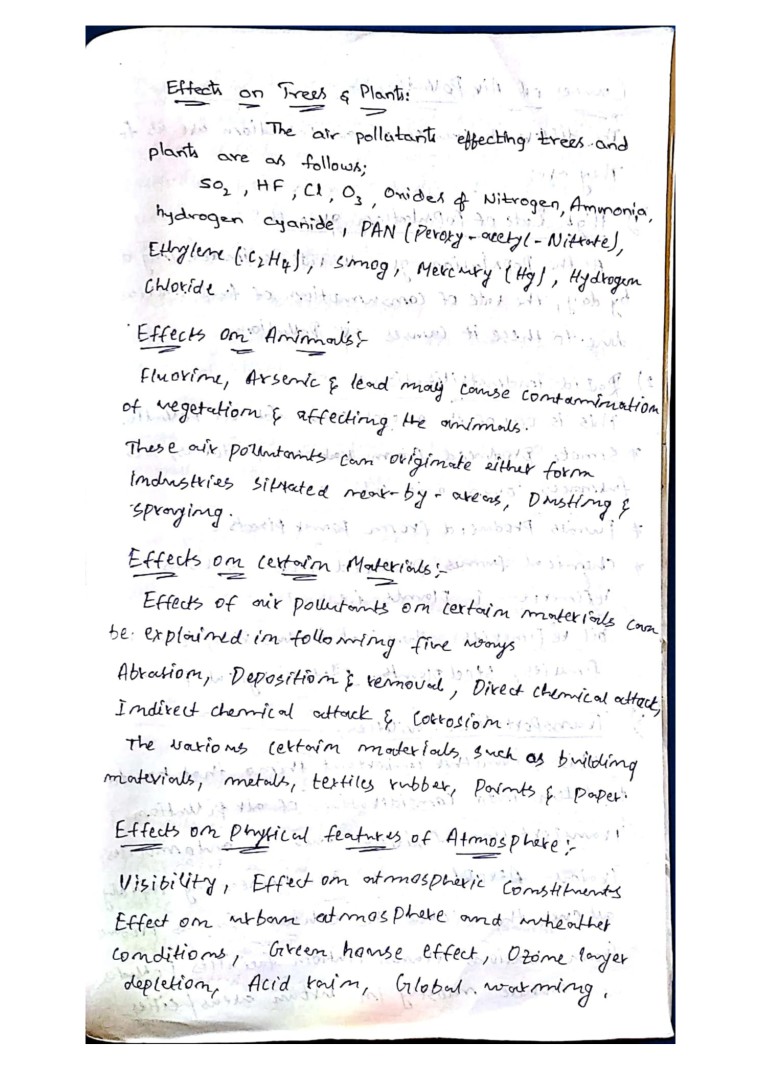 Effects on Trees & Plants:
The air pollutants effecting trees and
plants are as follows;
SO2, HF, Cl, O3, Oxides of Nitrogen, Ammonia,
hydrogen cyanide, PAN (Peroxy-acetyl-Nitrate),
Ethylene (C2H4), smog, Mercury (Hg), Hydrogen
Chloride.
Effects on Animals:-
Fluorine, Arsenic & lead may cause contamination
of vegetation & affecting the animals.
These air pollutants can originate either form
Industries situated near-by-areas, Dusting &
spraying.
Effects on certain Materials:-
Effects of air pollutants on certain materials can
be explained in following five ways
Abrasion, Deposition & removal, Direct chemical attack,
Indirect chemical attack & Corrosion.
The various certain materials, such as building
materials, metals, textiles rubber, Paints & paper.
Effects on Physical features of Atmosphere:-
Visibility, Effect on atmospheric Constituents
Effect on urban atmosphere and wheather
conditions, Green house effect, Ozone layer
depletion, Acid rain, Global warming.